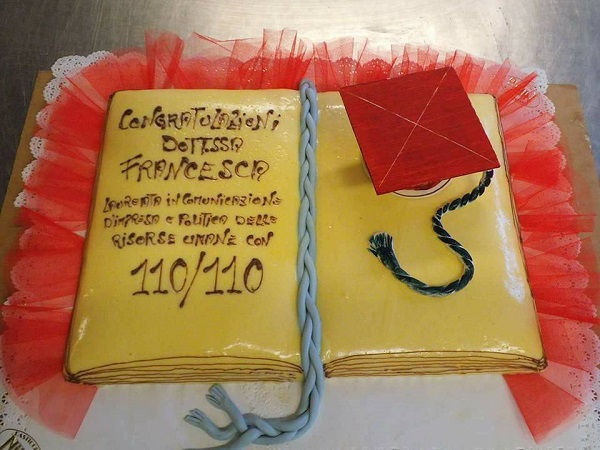 CONGRATULAZIONI
DOTT.SSA
FRANCESCA
LAUREATA IN COMUNICAZIONE
D'IMPRESA E POLITICA DELLE
RISORSE UMANE CON
110/110